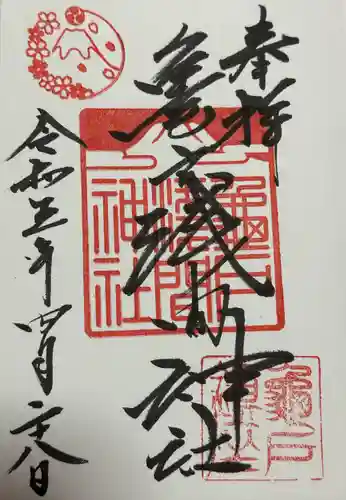 奉拝
亀戸浅間神社
令和五年四月二十八日
龜戸
淺間
神社
龜戸